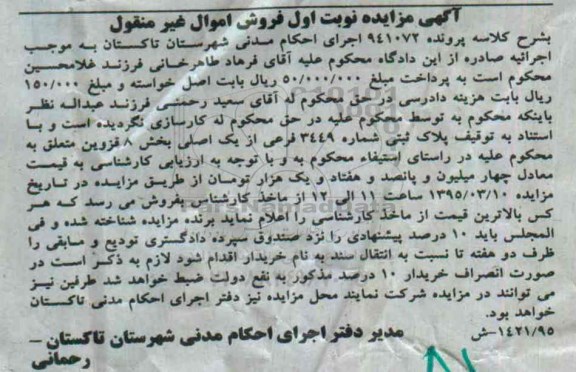 آگهی مزایده نوبت اول فروش اموال غیر منقول
بشرح کلاسه پرونده ۹۴۱۰۷۲ اجرای احکام مدنی شهرستان تاکستان به موجب
اجرائیه صادره از این دادگاه محکوم علیه آقای فرهاد طاهرخانی فرزند غلامحسین
محکوم است به پرداخت مبلغ ۵۰/۰۰۰/۰۰۰ ریال بابت اصل خواسته و مبلغ ۱۵۰/۰۰۰
ریال بابت هزینه دادرسی در حق محکوم له آقای سعید رحمنی فرزند عبداله نظر
باینکه محکوم به توسط محکوم علیه در حق محکوم له کارسازی نگردیده است و با
استناد به توقیف پلاک ثبتی شماره ۳۴۴۹ فرعی از یک اصلی بخش ۸ قزوین متعلق به
محکوم علیه در راستای استیفاء محکوم به و با توجه به ارزیابی کارشناسی به قیمت
معادل چهار میلیون و پانصد و هفتاد و یک هزار تومان از طریق مزایده در تاریخ
مزایده ۱۳۹۵/۰۳/۱۰ ساعت ۱۱ الی ۱۲ از ماخذ کارشناس بفروش می رسد که هر
کس بالاترین قیمت از ماخذ کارشناسی را اعلام نماید برنده مزایده شناخته شده و فی
المجلس باید ۱۰ درصد پیشنهادی را نزد صندوق سپرده دادگستری تودیع و مابقی را
ظرف دو هفته تا نسبت به انتقال سند به نام خریدار اقدام شود لازم به ذکر است در
صورت انصراف خریدار ۱۰ درصد مذکور به نفع دولت ضبط خواهد شد طرفین نیز
می توانند در مزایده شرکت نمایند محل مزایده نیز دفتر اجرای احکام مدنی تاکستان
خواهد بود.
۱۴۲۱/۹۵-ش
مدیر دفتر اجرای احکام مدنی شهرستان تاکستان –
رحمانی